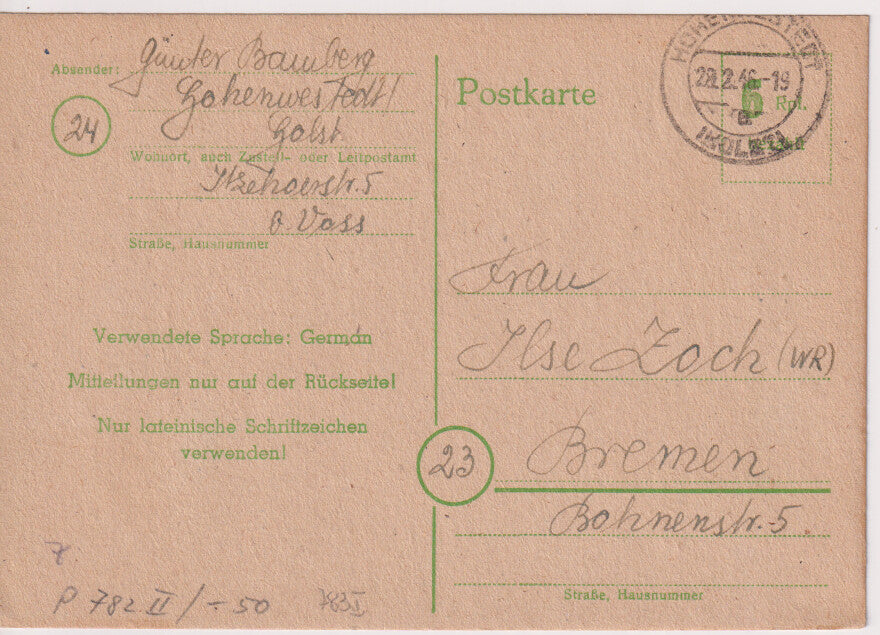 Absender: Günter Bamberg
Hohenwestedt/
Holst.
24
Wohnort, auch Zustell- oder Leitpostamt
Itzehoerstr. 5
b. Voss
Straße, Hausnummer
Verwendete Sprache: German
Mitteilungen nur auf der Rückseite!
Nur lateinische Schriftzeichen
verwenden!
P 782 II / -50
783 I
Postkarte
6 Rpf.
(HOLST)
Frau
Ilse Zoch (WR)
23
Bremen
Bohnenstr. 5
Straße, Hausnummer